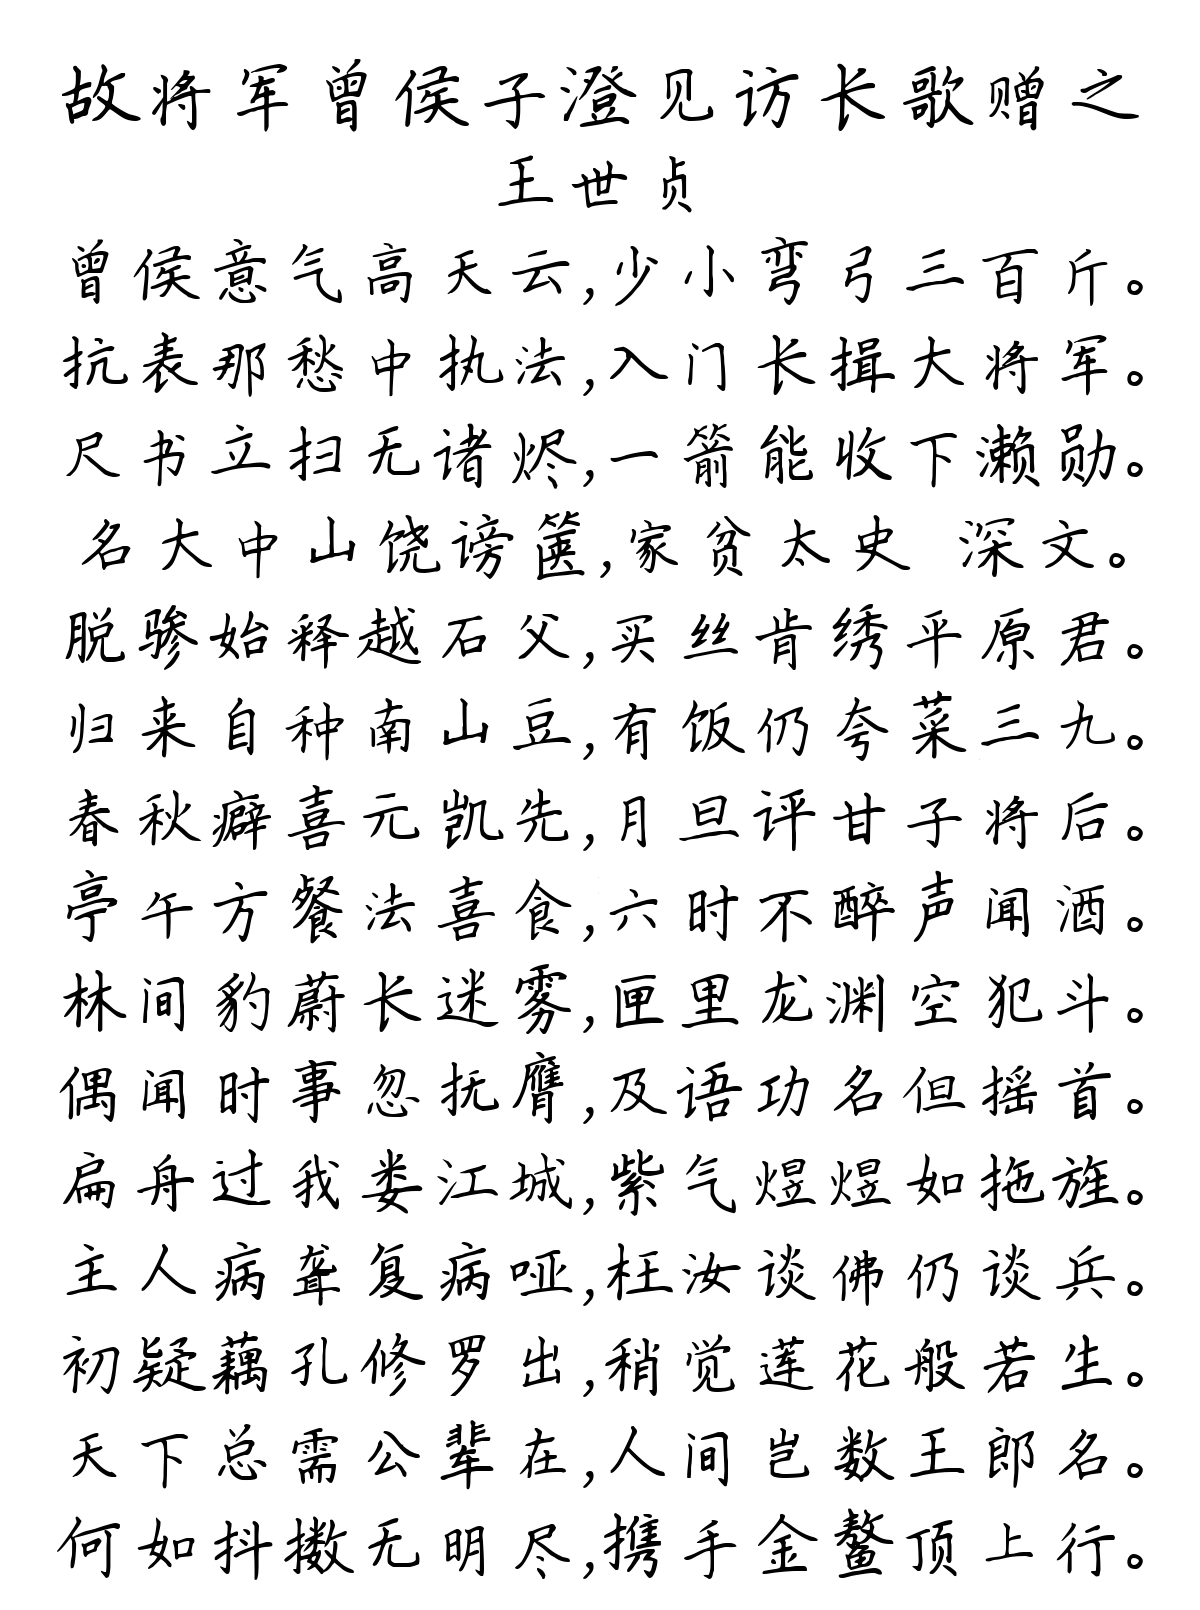 故将军曾侯子澄见访长歌赠之
王世贞
曾侯意气高天云,少小弯弓三百斤。
抗表那愁中执法,入门长揖大将军。
尺书立扫无诸烬,一箭能收下濑勋。
名大中山饶谤箧,家贫太史 深文。
脱骖始释越石父,买丝肯绣平原君。
归来自种南山豆,有饭仍夸菜三九。
春秋癖喜元凯先,月旦评甘子将后。
亭午方餐法喜食,六时不醉声闻酒。
林间豹蔚长迷雾,匣里龙渊空犯斗。
偶闻时事忽抚膺,及语功名但摇首。
扁舟过我娄江城,紫气煜煜如拖旌。
主人病聋复病哑,枉汝谈佛仍谈兵。
初疑藕孔修罗出,稍觉莲花般若生。
天下总需公辈在,人间岂数王郎名。
何如抖擞无明尽,携手金鳌顶上行。